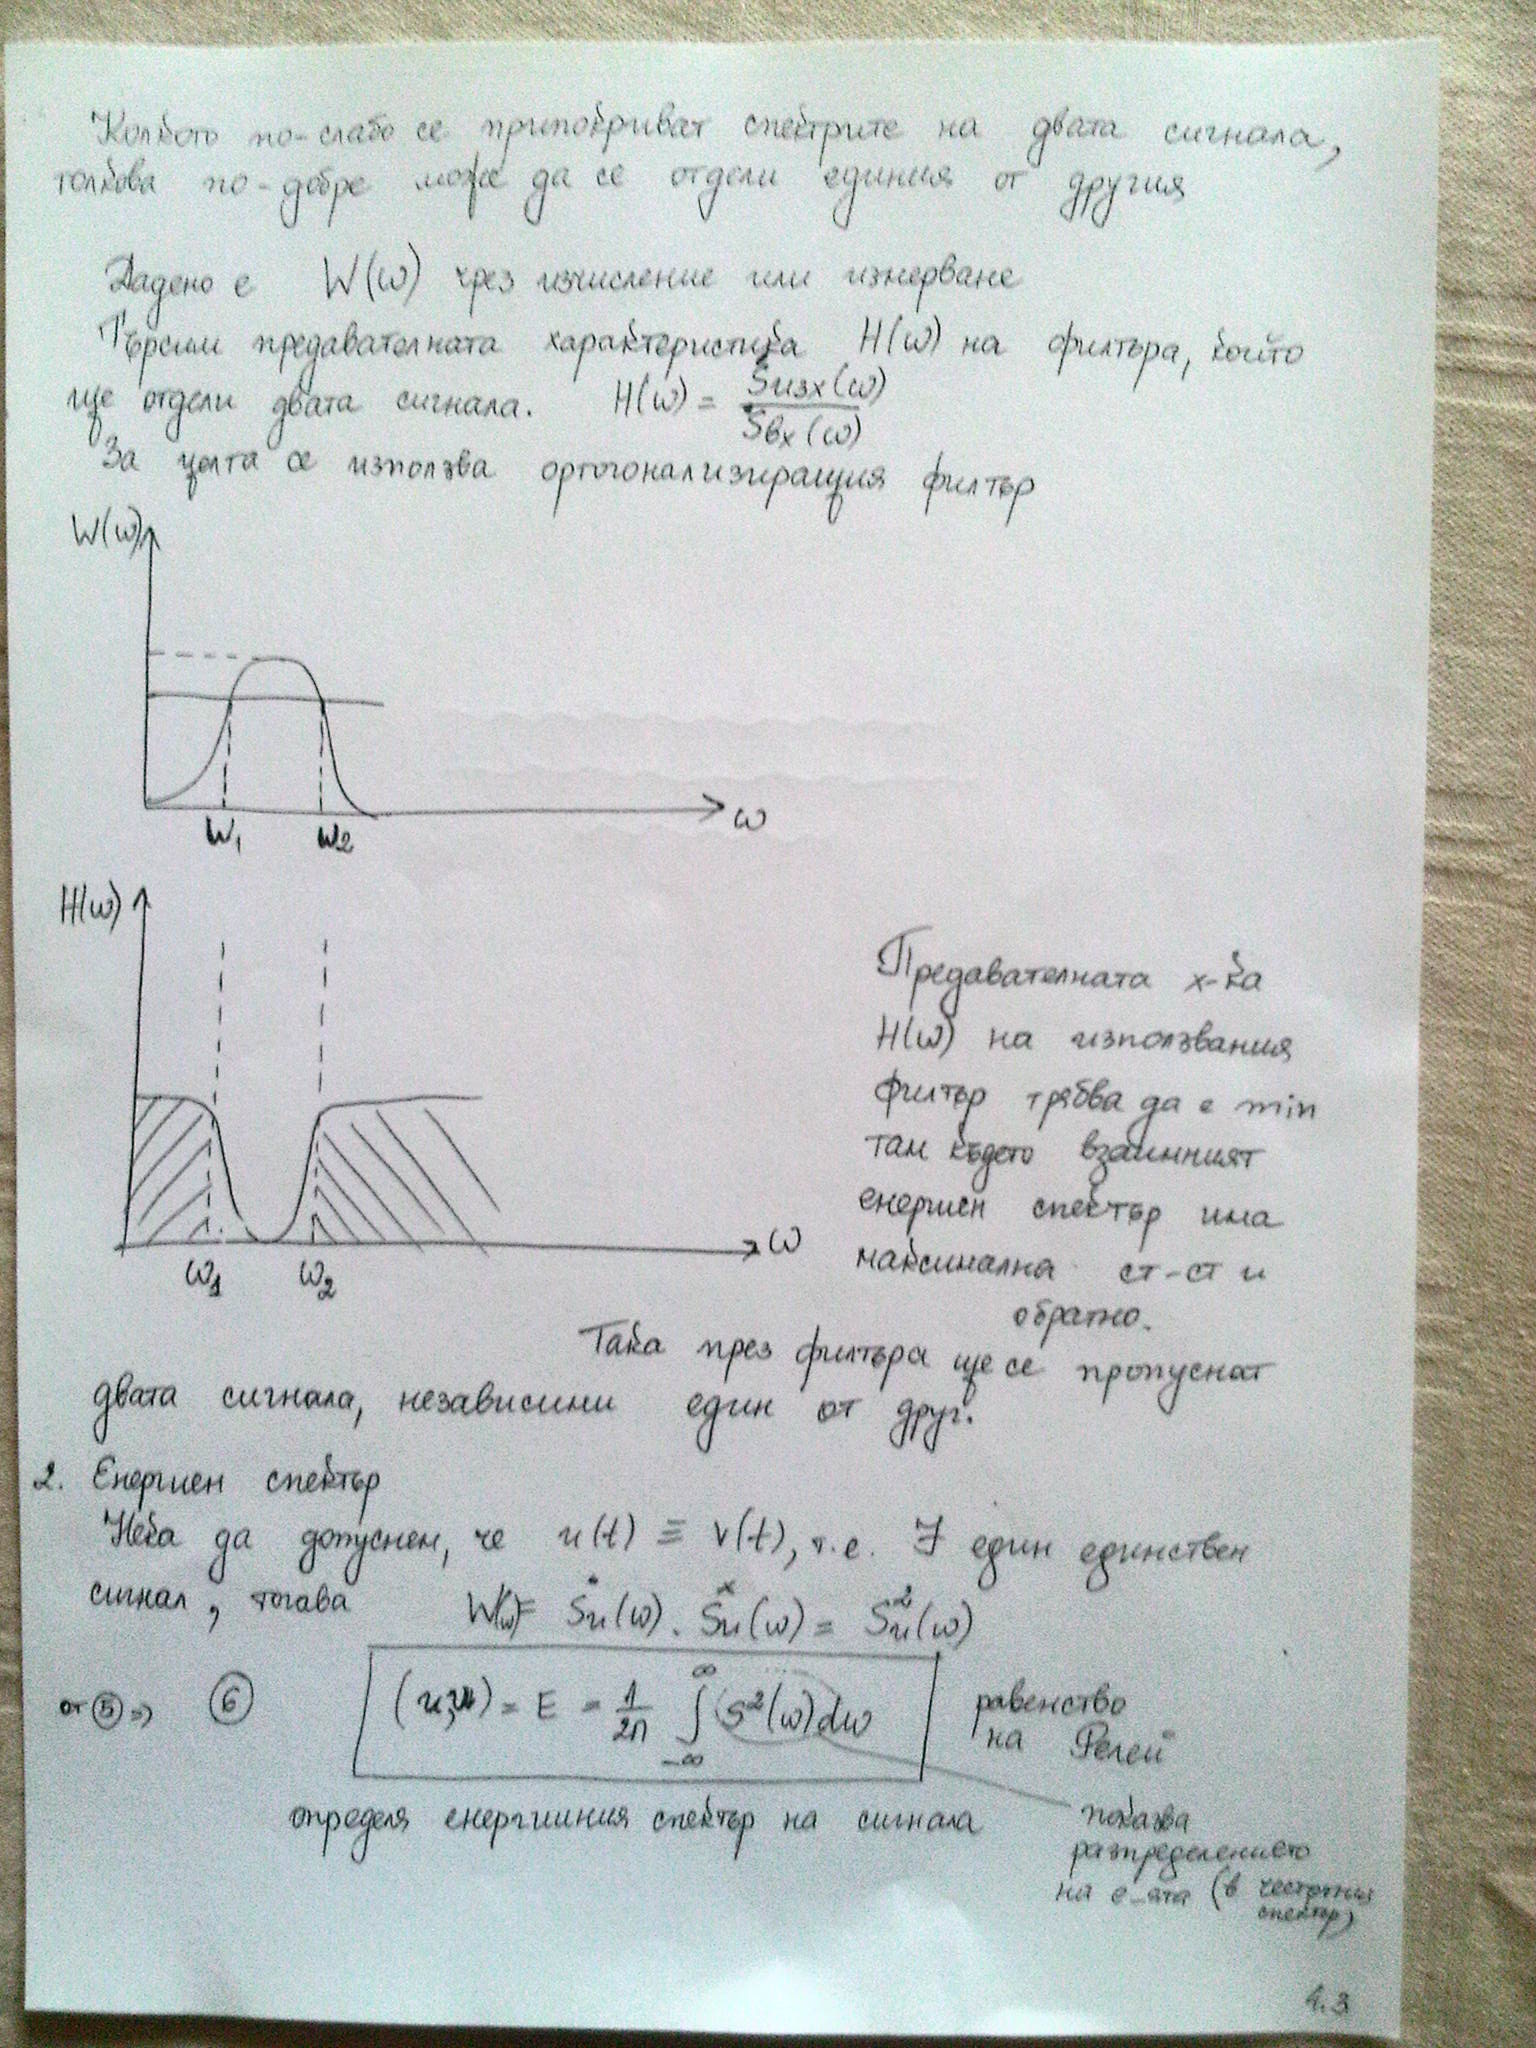 Колкото по-слабо се припокриват спектрите на двата сигнала,
толкова по-добре може да се отдели единия от другия
Дадено е W(ω) чрез изчисление или измерване
Търсим предавателната характеристика H(ω) на филтъра, който
ще отдели двата сигнала. H(ω) = Ṡизх(ω) / Ṡвх(ω)
За целта се използва ортогонализиращия филтър
W(ω)
ω
ω₁ ω₂
H(ω)
ω
ω₁ ω₂
Предавателната х-ка
H(ω) на използвания
филтър трябва да е min
там където взаимният
енергиен спектър има
максимална ст-ст и
обратно.
Така през филтъра ще се пропуснат
двата сигнала, независими един от друг.
2. Енергиен спектър
Нека да допуснем, че u(t) ≡ v(t), т.е. ∃ един единствен
сигнал, тогава W(ω) = Ṡu(ω) . S*u(ω) = Su²(ω)
от ⑤ => ⑥ (u,u) = E = 1/2π ∫_{-∞}^{∞} S²(ω)dω равенство
на Релей
определя енергийния спектър на сигнала
показва
разпределението
на е-ята (в честотния
спектър)
4.3